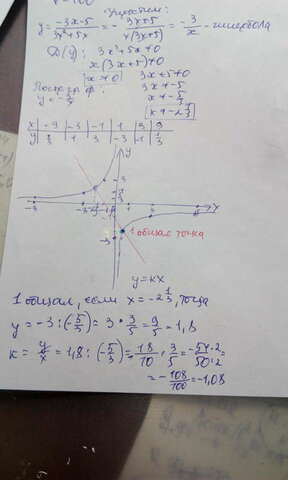 Упростим:
y = -3x-5 / 3x²+5x = - 3x+5 / x(3x+5) = - 3/x - гипербола
D(y): 3x²+5x≠0
x(3x+5)≠0
x≠0 3x+5≠0
3x≠-5
x≠-5/3
x≠-2 1/3
y = -3/x
x | -9 | -3 | -1 | 1 | 3 | 9
y | 1/3 | 1 | 3 | -3 | -1 | 1/3
y
3
1
-3 -1 x
-3
1 общая точка
y=kx
1 общая, если x = -2 1/3, тогда
y = -3:(-5/3) = 3·3/5 = 9/5 = 1,8
k = y/x = 1,8:(-5/3) = - 18/10 · 3/5 = -54·2/50·2 =
= -108/100 = -1,08